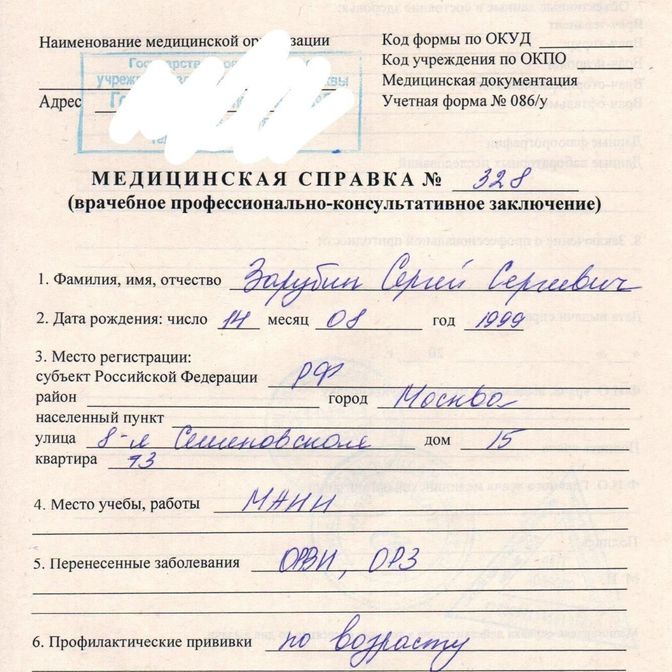 Наименование медицинской организации
Адрес
Код формы по ОКУД
Код учреждения по ОКПО
Медицинская документация
Учетная форма № 086/у
МЕДИЦИНСКАЯ СПРАВКА № 328
(врачебное профессионально-консультативное заключение)
1. Фамилия, имя, отчество Зарубин Сергей Сергеевич
2. Дата рождения: число 14 месяц 08 год 1999
3. Место регистрации:
субъект Российской Федерации РФ
район город Москва
населенный пункт
улица 8-я Семеновская дом 15
квартира 73
4. Место учебы, работы
5. Перенесенные заболевания ОРВИ, ОРЗ
6. Профилактические прививки по возрасту